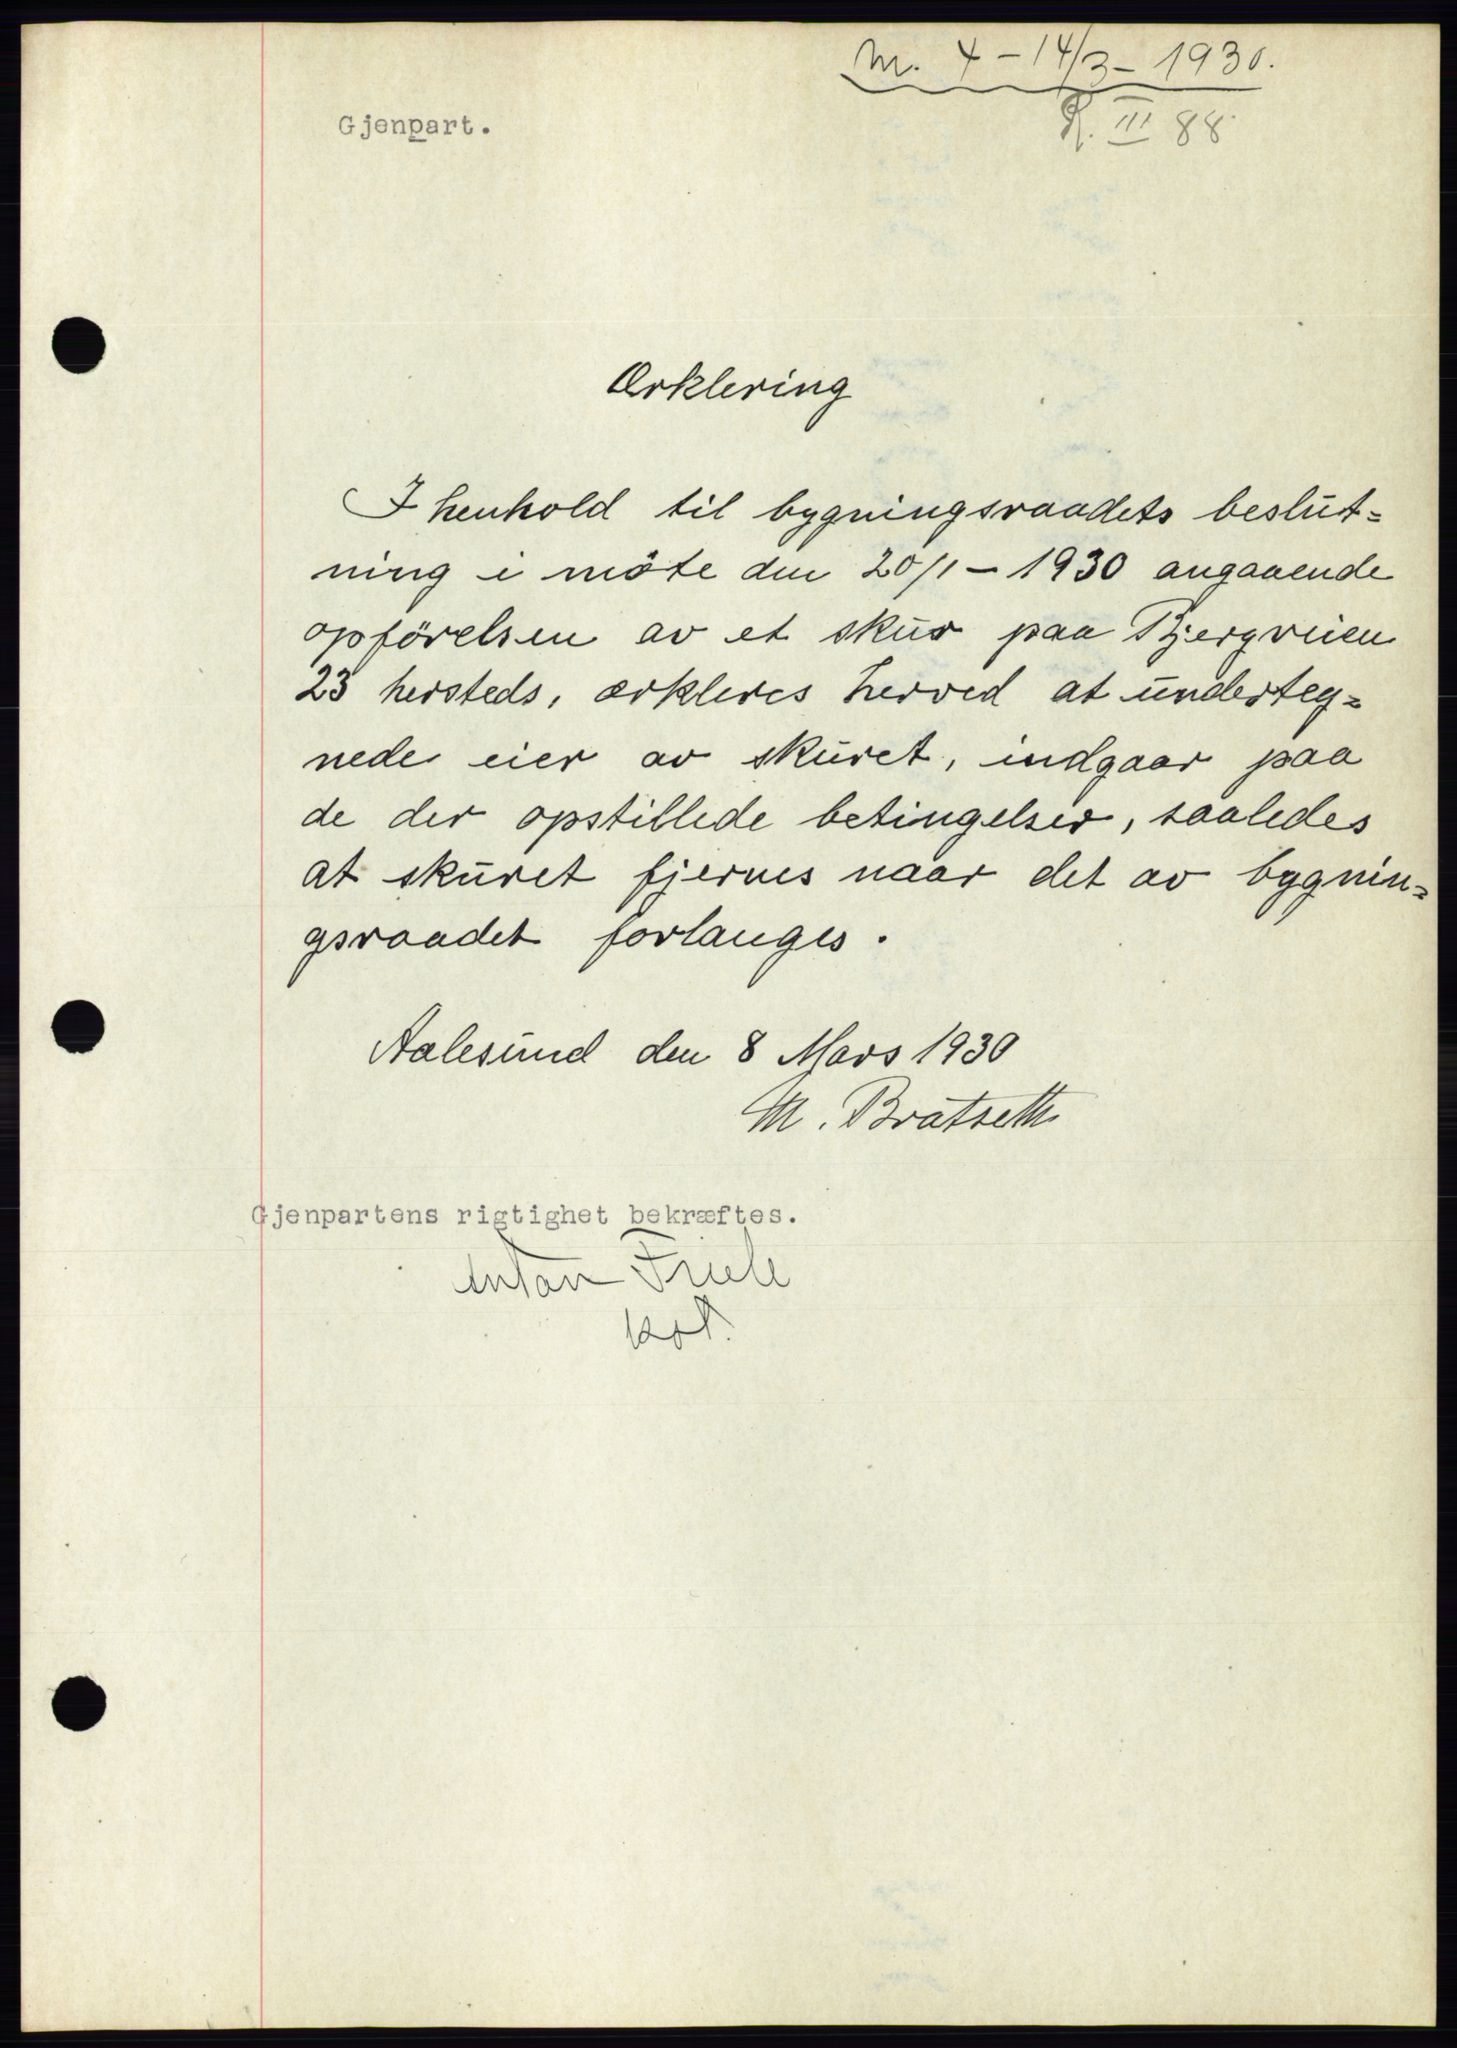 M. 4 - 14/3 - 1930.
R. III 88
Gjenpart.
Ærklering
I henhold til bygningsraadets beslut=
ning i möte den 20/1 - 1930 angaaende
opförelsen av et skur paa Bjergveien
23 hersteds, ærkleres herved at underteg=
nede eier av skuret, indgaar paa
de der opstillede betingelser, saaledes
at skuret fjernes naar det av bygnin=
gsraadet forlanges.
Aalesund den 8 Mars 1930
M. Bratseth
Gjenpartens rigtighet bekræftes.
Anton Friele